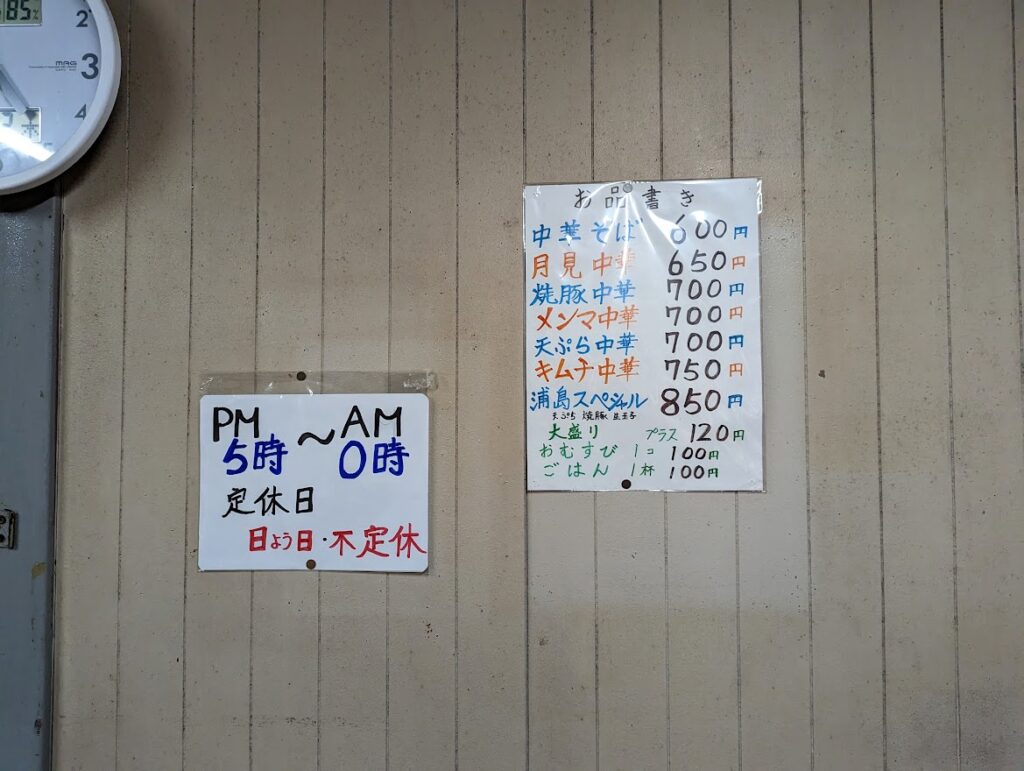 85%
2
3
4
MAG
PM 5時 ～ AM 0時
定休日
日よう日・不定休
お品書き
中華そば 600円
月見中華 650円
焼豚中華 700円
メンマ中華 700円
天ぷら中華 700円
キムチ中華 750円
浦島スペシャル 850円
天ぷら 焼豚 玉子
大盛り プラス 120円
おむすび 1コ 100円
ごはん 1杯 100円